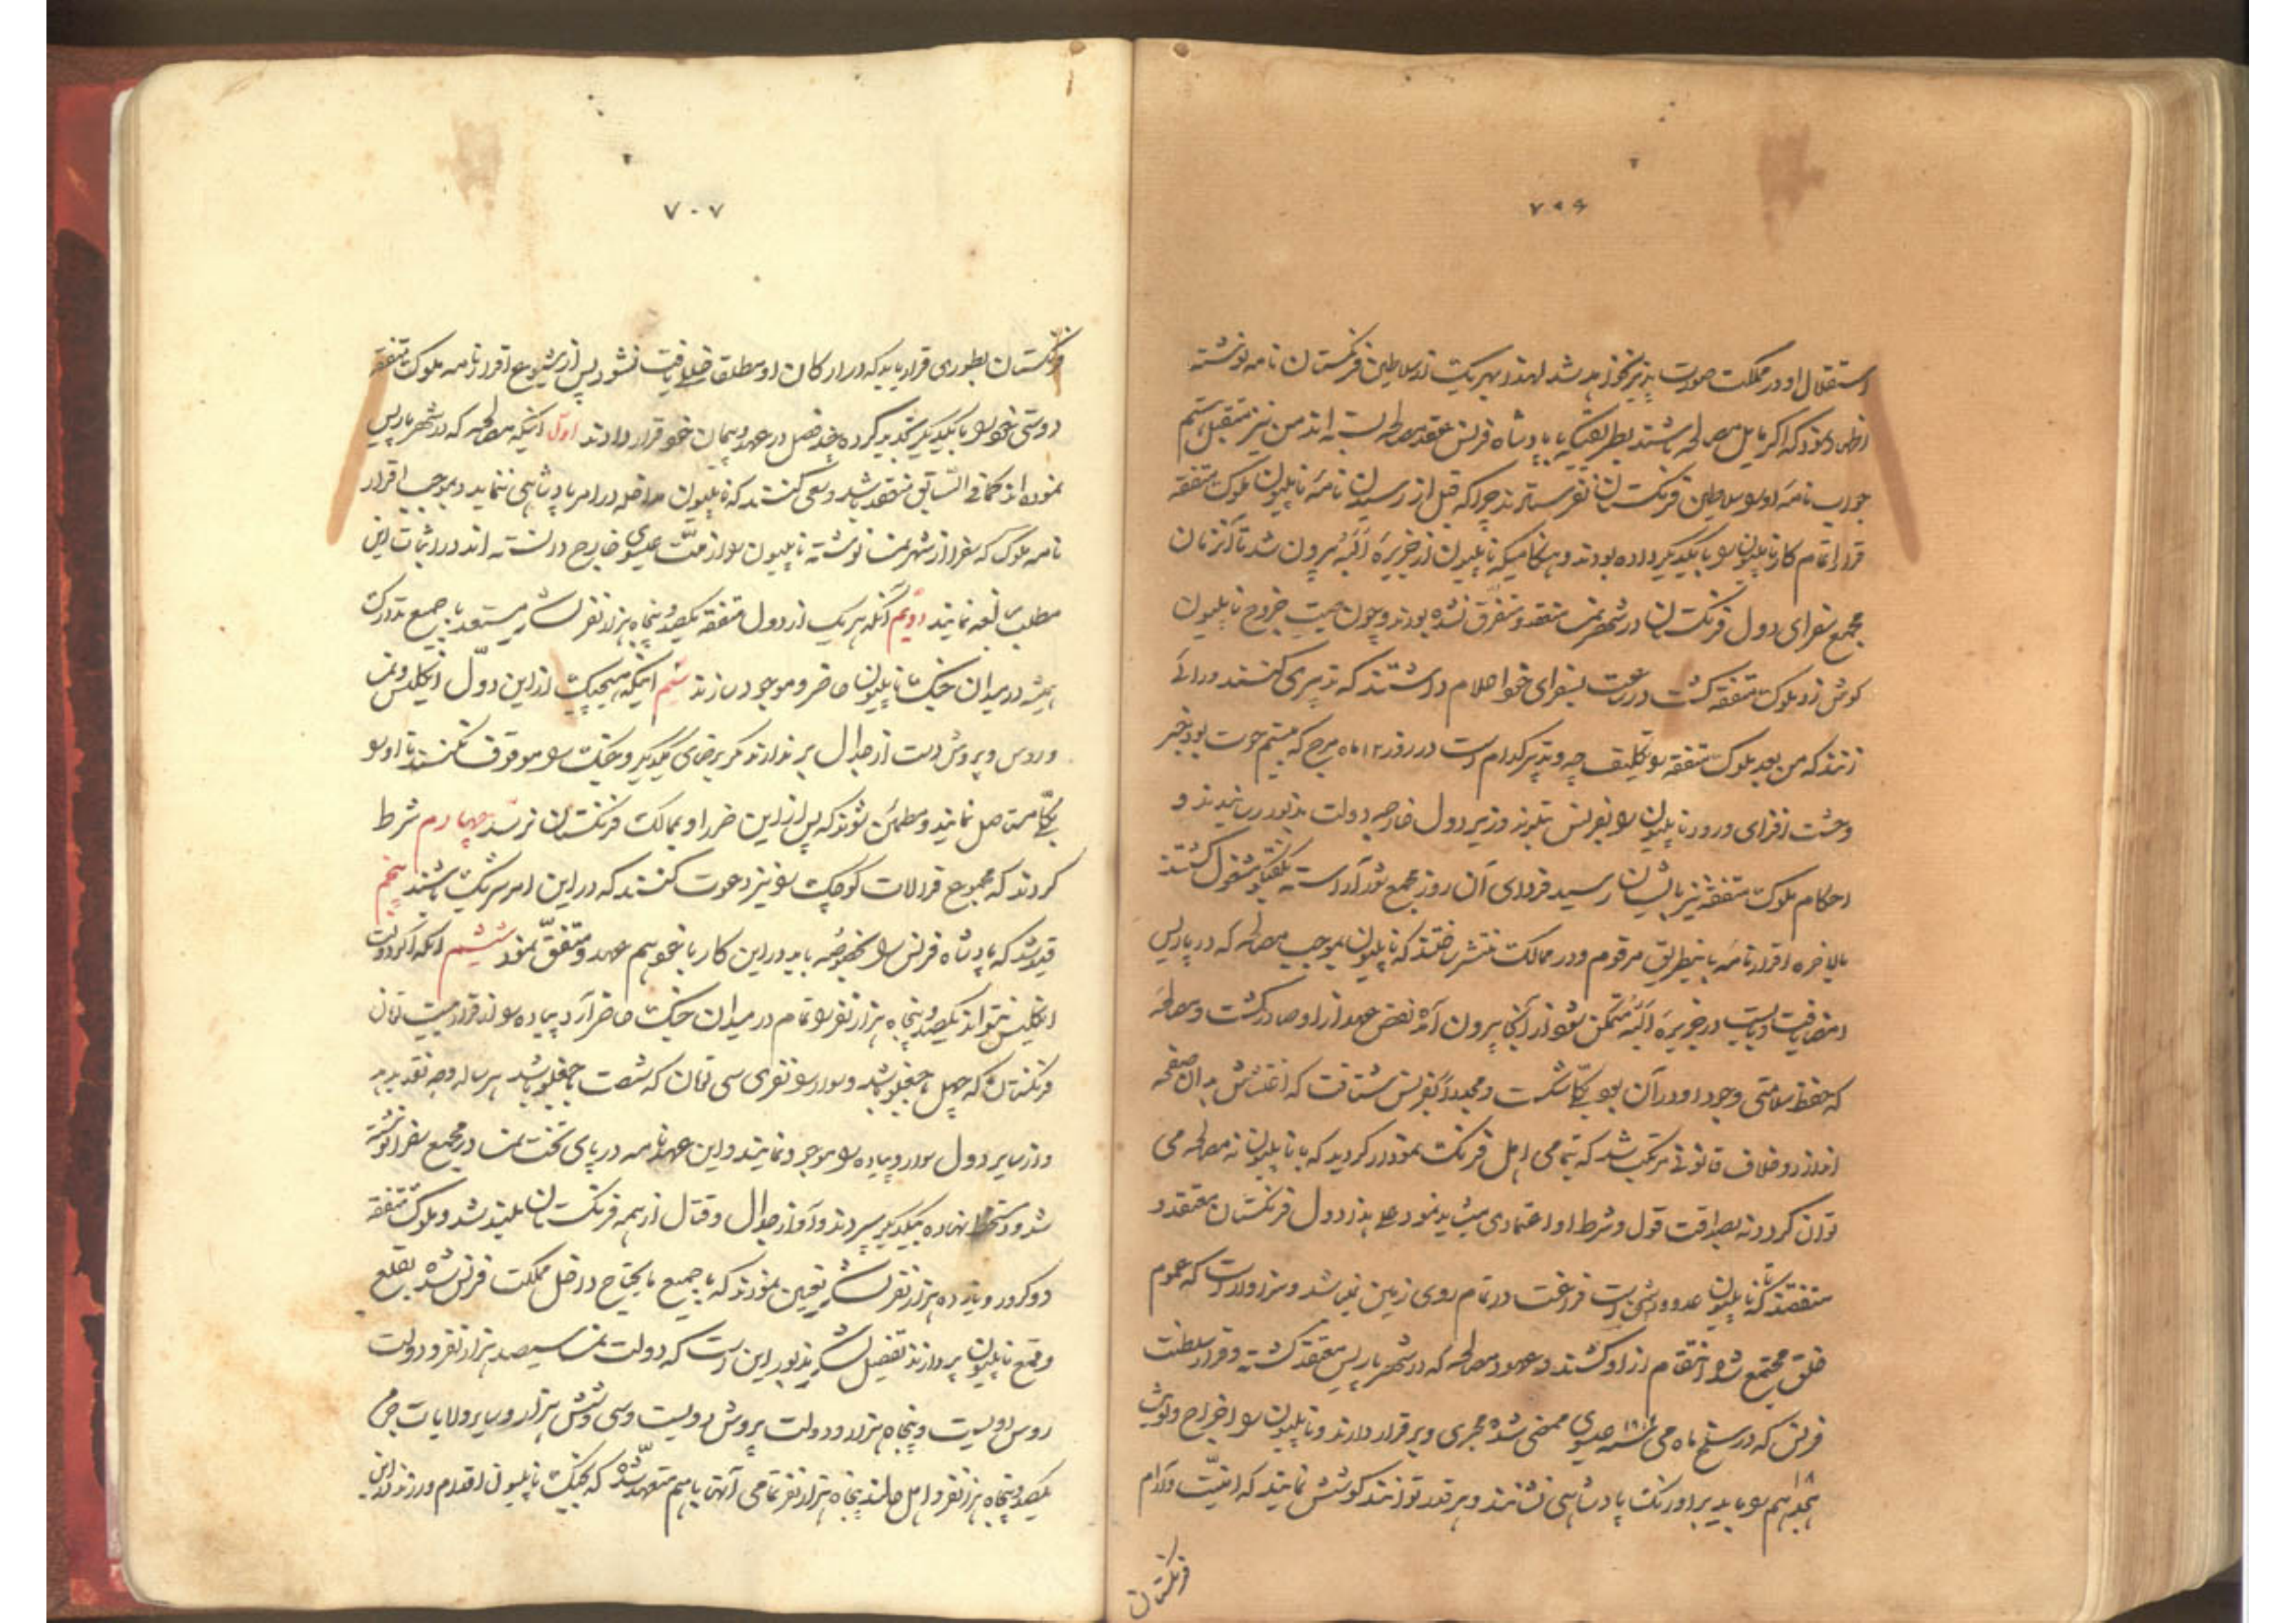 ۷۰۶
استقلال او در مملکت صورت پذیر نخواهد شد لهذا بهر یک از سلاطین فرنگستان نامه نوشته
اظهار نمود که اگر مایل مصالحه باشند بطریقیکه با پادشاه فرانس عقد مصالحه بسته اند من نیز متقبل هستم
جواب نامه او را سلاطین فرنگستان نفرستادند چرا که قبل از رسیدن نامه ناپلیون ملوک متفقه
قرار اتمام کار ناپلیون را با یکدیگر داده بودند و هنگامیکه ناپلیون از جزیره البه بیرون شد تا آنزمان
مجمع سفرای دول فرنگستان در شهر نمسا منعقد و متفرق نشده بودند و چون صیت خروج ناپلیون
گوش زد ملوک متفقه گشت در ساعت بسفرای خود اعلام داشتند که تدبیری کنند و رائی
زنند که من بعد ملوک متفقه را تکلیف چه و تدبیر کدام است در روز ۱۲ ماه مرج که بیستم حوت بود خبر
وحشت افزای ورود ناپلیون را بفرانس وزیر دول خارجه دولت مذبور رسانیدند و
احکام ملوک متفقه نیز بایشان رسید فردای آن روز مجمع شور آراسته بگفتگو مشغول گشتند
بالاخره اقرارنامه باینطریق مرقوم و در ممالک منتشر ساختند که ناپلیون بموجب مصالحه که در پاریس
امضا یافت و بایست در جزیره البه متمکن شود از آنجا بیرون آمد نقض عهد از او صادر گشت و مصالحه
که حفظ سلامتی وجود او در آن بود یکجا شکست و مجددا بفرانس شتافت که اغتشاش بدان صفحه
اندازد و خلاف قانونی مرتکب شد که بتمامی اهل فرنگ نمودار گردید که با ناپلیون نه مصالحه می
توان کرد و نه بصداقت قول و شرط او اعتمادی میشاید نمود علی هذا دول فرنگستان معتقد و
متفقند که تا ناپلیون عدو و دشمن است فراغت در تمام روی زمین نباشد و سزاوار است که عموم
خلق مجتمع شده انتقام از او کشند و عهود مصالحه که در شهر پاریس منعقد گشته و قرار سلطنت
فرانس که در سلخ ماه می سنه ۱۸۱۴ عیسوی ممضی شده مجری و برقرار دارند و ناپلیون را اخراج و لوئی
۱۸ هجدهم را باید بر اورنگ پادشاهی نشانند و هر قدر توانند کوشش نمایند که امنیت و آرام
فرنگستان
۷۰۷
فرنگستان بطوری قرار یابد که در ارکان او مطلقا خللی یافت نشود پس از شیوع اقرارنامه ملوک متفقه
دوستی خود را با یکدیگر تجدید کرده چند فصل در عهد و پیمان خود قرار دادند اول اینکه مصالحه که در شهر پاریس
نموده اند کما فی السابق منعقد باشد و سعی کنند که ناپلیون مداخله در امر پادشاهی ننماید و بموجب اقرار
نامه ملوک که سفرا از شهر نمسا نوشته ناپلیون را از ملت عیسوی خارج دانسته اند در اثبات این
مطلب مبالغه نمایند دویم آنکه هر یک از دول متفقه یکصد و پنجاه هزار نفر لشکر مستعد با جمیع تدارک
همیشه در میدان جنگ ناپلیون حاضر و موجود سازند سیم اینکه هیچیک از این دول انگلیس و نمسا
و روس و پروش دست از جدال بر ندارند مگر برضای یکدیگر و جنگ را موقوف نکنند تا او را
یکجا مستاصل نمایند و مطمئن شوند که پس از این ضرر او بممالک فرنگستان نرسد چهارم شرط
کردند که مجموع قرالات کوچک را نیز دعوت کنند که در این امر شریک باشند پنجم
قید شد که پادشاه فرانس را بخصوصه باید در این کار با خود هم عهد و متفق نمود ششم اینکه اگر دولت
انگلیس نتواند یکصد و پنجاه هزار نفر را تمام در میدان جنگ حاضر آرد پیاده را از قرار بیست تمان
فرنگستان که چهل باجغلو باشد و سوار را نفری سی تمان که شصت باجغلو باشد هر ساله وجه نقد بدهد
و از سایر دول سوار و پیاده را موجود نمایند و این عهدنامه در پای تخت نمسا در مجمع سفرا نوشته
شد و دستخط نهاده بیکدیگر سپردند و آواز جدال و قتال از همه فرنگستان بلند شد و ملوک متفقه
دو کرور و یازده هزار نفر لشکر تعیین نمودند که با جمیع مایحتاج داخل مملکت فرانس شده بقلع
و قمع ناپلیون پردازند تفصیل لشکر مذبور این است که دولت نمسا سیصد هزار نفر و دولت
روس دویست و پنجاه هزار و دولت پروش دویست و سی و شش هزار و سایر ولایات جرمن
یکصد و پنجاه هزار نفر و اهل هلند پنجاه هزار نفر تمامی آنها با هم متعهد شده که بجنگ ناپلیون اقدام ورزند و این